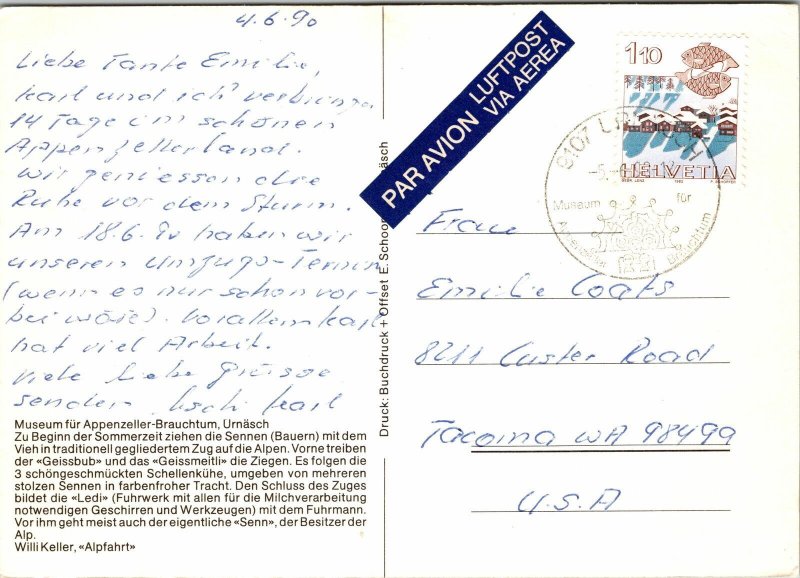 4.6.90
Liebe Tante Emilie,
Karl und ich verbringen
14 Tage im schönen
Appenzellerland.
Wir geniessen die
Ruhe vor dem Sturm.
Am 18.6.90 haben wir
unseren Umzugs-Termin
(wenn es nur schon vor-
bei wäre). Vorallem Karl
hat viel Arbeit.
Viele Liebe Grüsse
senden Karl
Museum für Appenzeller-Brauchtum, Urnäsch
Zu Beginn der Sommerzeit ziehen die Sennen (Bauern) mit dem
Vieh in traditionell gegliedertem Zug auf die Alpen. Vorne treiben
der «Geissbub» und das «Geissmeitli» die Ziegen. Es folgen die
3 schöngeschmückten Schellenkühe, umgeben von mehreren
stolzen Sennen in farbenfroher Tracht. Den Schluss des Zuges
bildet die «Ledi» (Fuhrwerk mit allen für die Milchverarbeitung
notwendigen Geschirren und Werkzeugen) mit dem Fuhrmann.
Vor ihm geht meist auch der eigentliche «Senn», der Besitzer der
Alp.
Willi Keller, «Alpfahrt»
Druck: Buchdruck + Offset E. Schoop
näsch
PAR AVION LUFTPOST
VIA AEREA
110
HELVETIA
9107 URNÄSCH
Museum für
Appenzeller Brauchtum
Frau
Emilie Coats
8211 Custer Road
Tacoma WA 98499
U.S.A